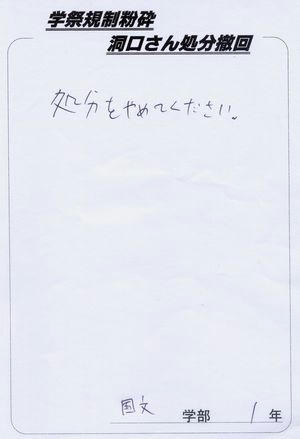 学祭規制粉砕
洞口さん処分撤回
処分をやめてください。
国文 学部 1年